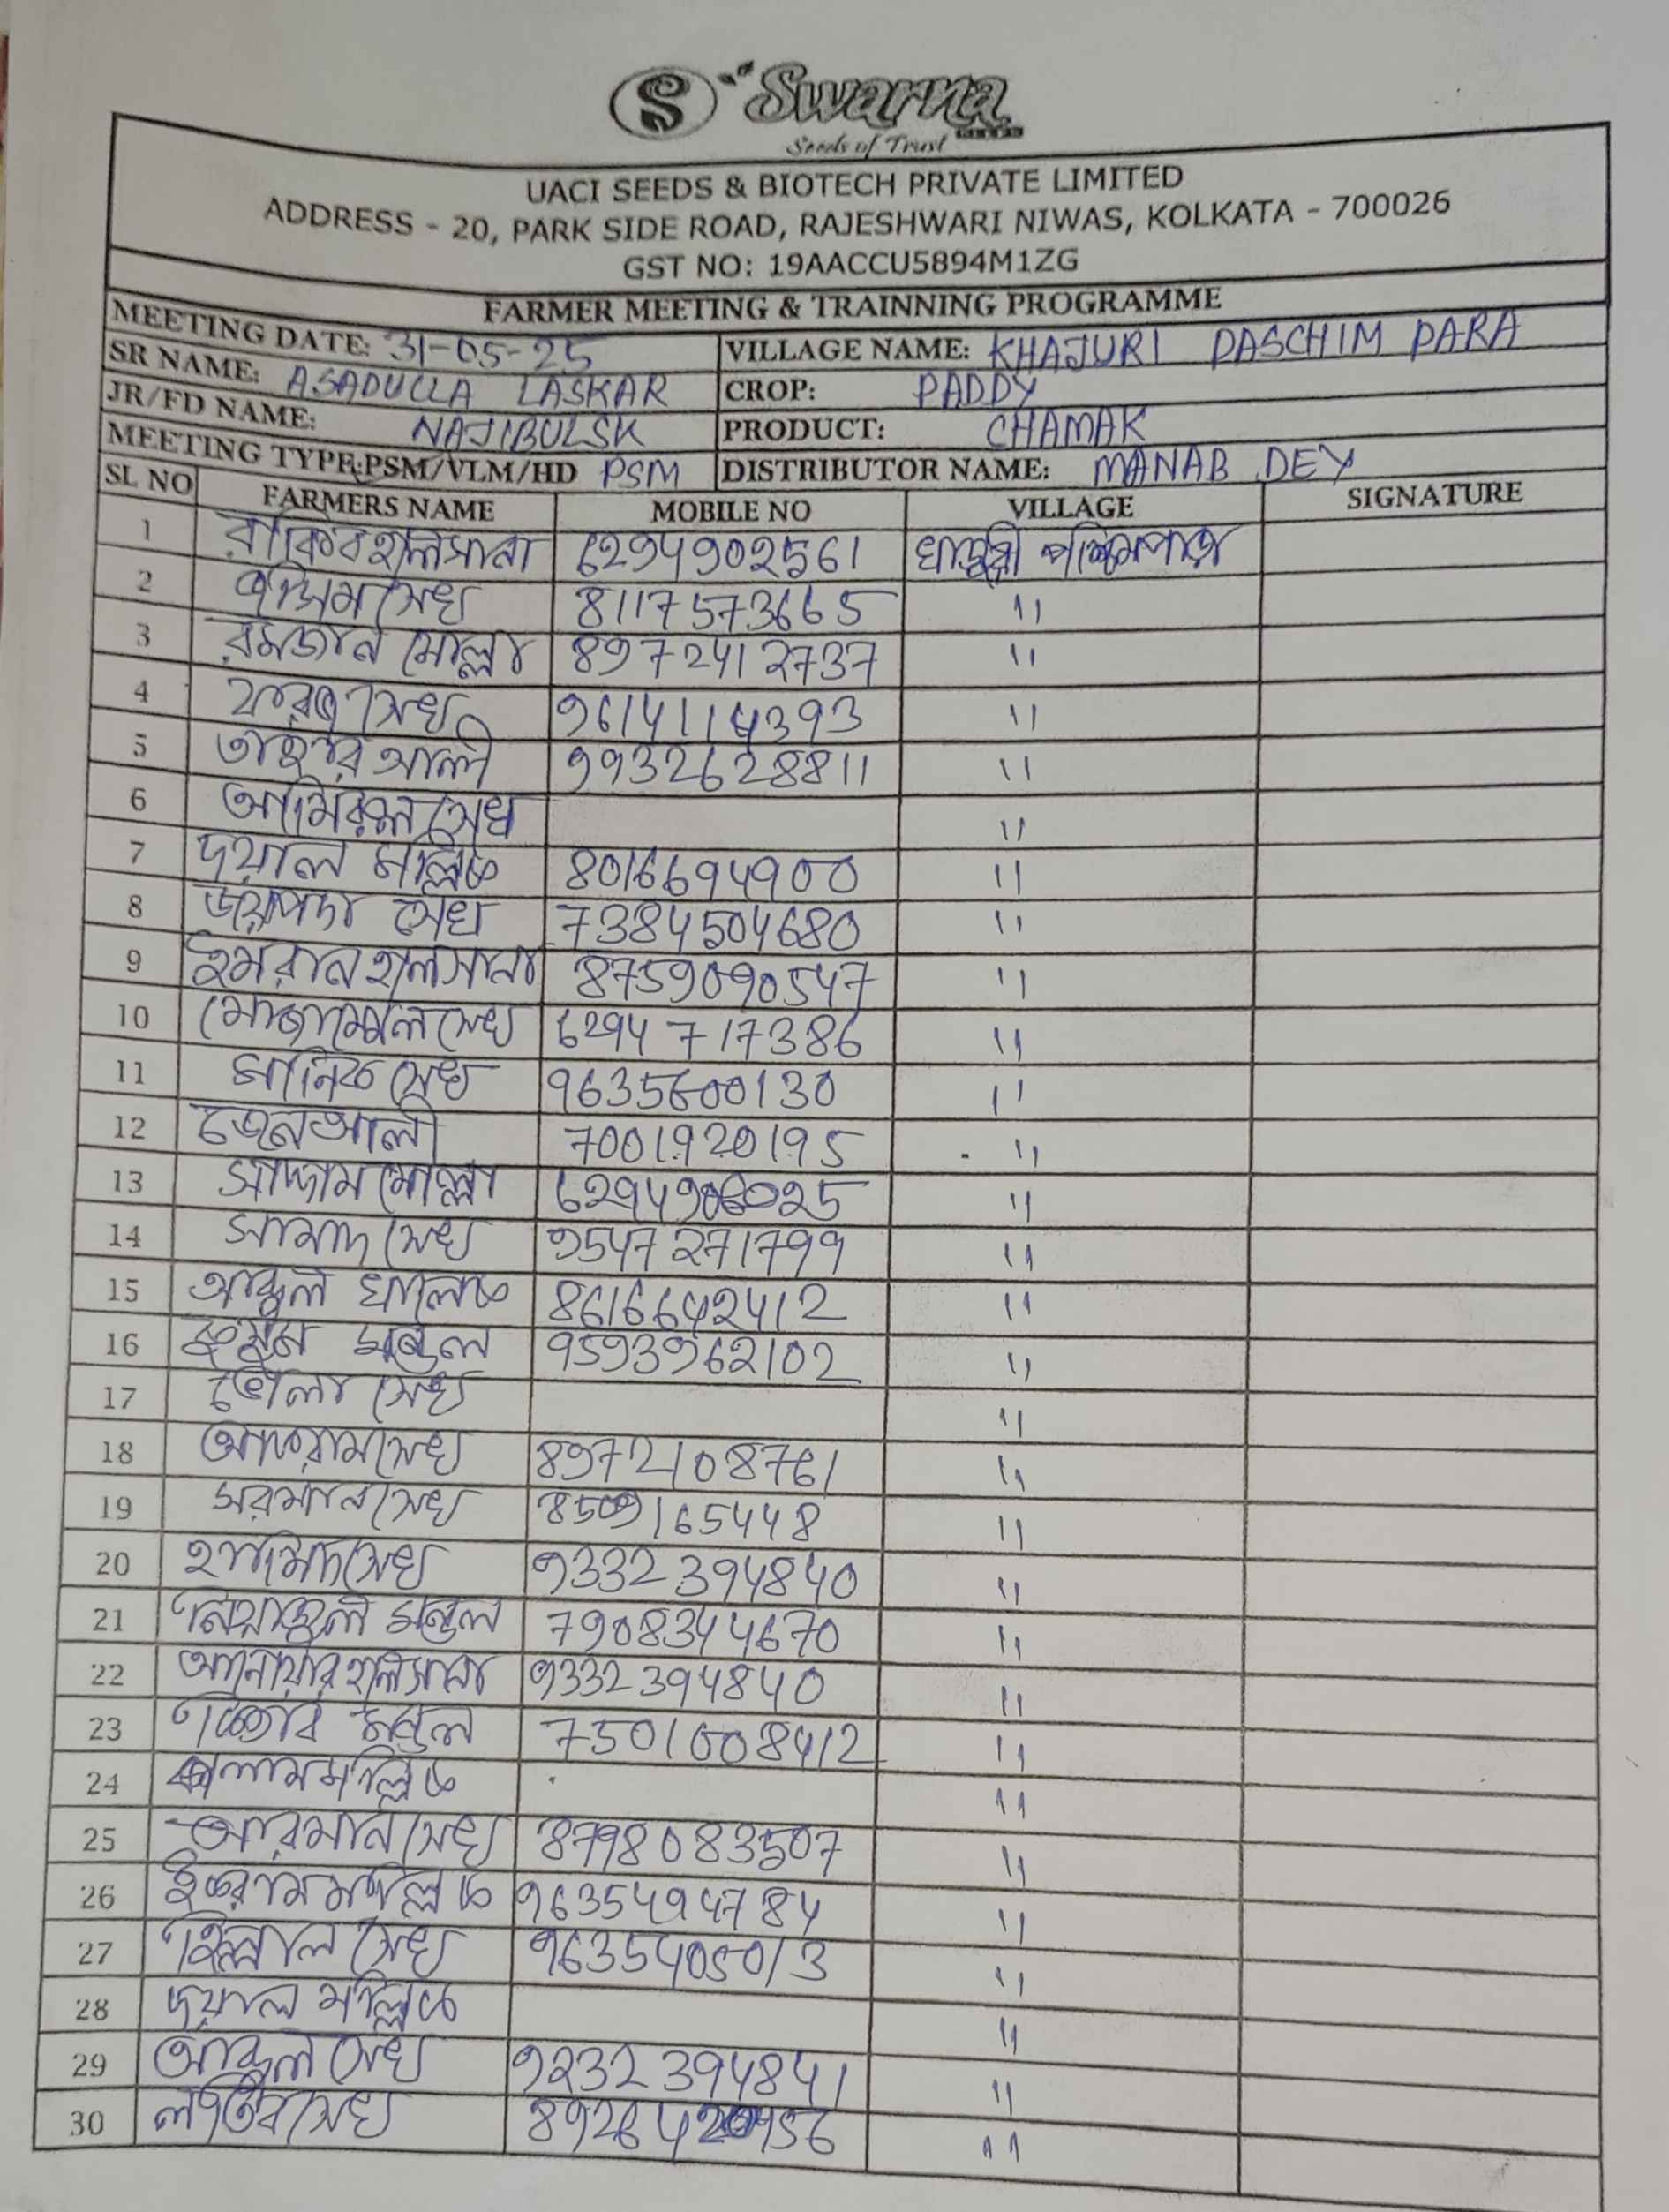 S Swarna
SEEDS
Seeds of Trust
UACI SEEDS & BIOTECH PRIVATE LIMITED
ADDRESS - 20, PARK SIDE ROAD, RAJESHWARI NIWAS, KOLKATA - 700026
GST NO: 19AACCU5894M1ZG
FARMER MEETING & TRAINNING PROGRAMME
MEETING DATE: 31-05-25 VILLAGE NAME: KHAJURI PASCHIM PARA
SR NAME: ASADULLA LASKAR CROP: PADDY
JR/FD NAME: NAJIBULSK PRODUCT: CHAMAK
MEETING TYPE:PSM/VLM/HD PSM DISTRIBUTOR NAME: MANAB DEY
SL NO FARMERS NAME MOBILE NO VILLAGE SIGNATURE
1 রাকিব হালসানা 6294902561 খাজুরী পশ্চিমপাড়া
2 সেখ 8117573665 "
3 রমজান মোল্লা 8972412737 "
4 সেখ 9614114393 "
5 তাহার আলী 9932628811 "
6 আমিরুল সেখ "
7 দয়াল মল্লিক 8016694900 "
8 জয়পদা সেখ 7384504680 "
9 ইমরান হালসানা 8759090547 "
10 মোজাম্মেল সেখ 6294717386 "
11 মানিক সেখ 9635600130 "
12 জেনআলী 7001920195 "
13 সাদ্দাম মোল্লা "
14 সামাদ সেখ 9547271799 "
15 আব্দুল খালেক 8616642412 "
16 মন্ডল 9593962102 "
17 ভোলা সেখ "
18 আকরাম সেখ 8972108761 "
19 সরমান সেখ 8509165448 "
20 হামিদ সেখ 9332394840 "
21 নিয়াজুল মন্ডল 7908344670 "
22 আনোয়ার হালসানা 9332394840 "
23 মন্ডল 7501008412 "
24 কালাম মল্লিক "
25 আরমান সেখ 8798083507 "
26 ইকরাম মল্লিক 9635494784 "
27 হিল্লাল সেখ 9635405013 "
28 দয়াল মল্লিক "
29 আব্দুল সেখ 9232394841 "
30 লতিব সেখ "